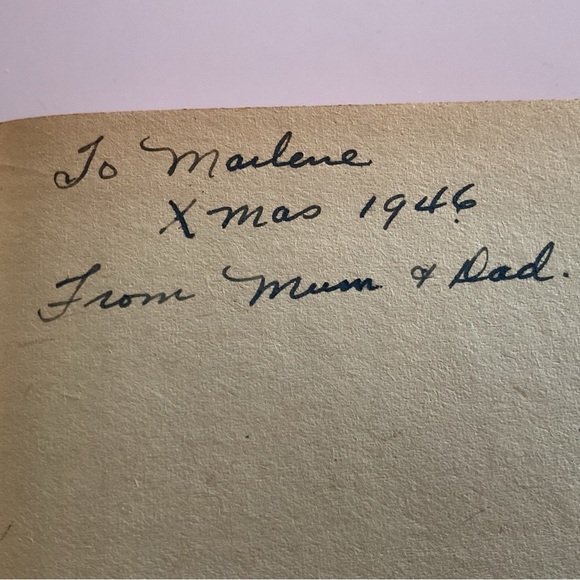 To Marlene
Xmas 1946
From Mum & Dad.